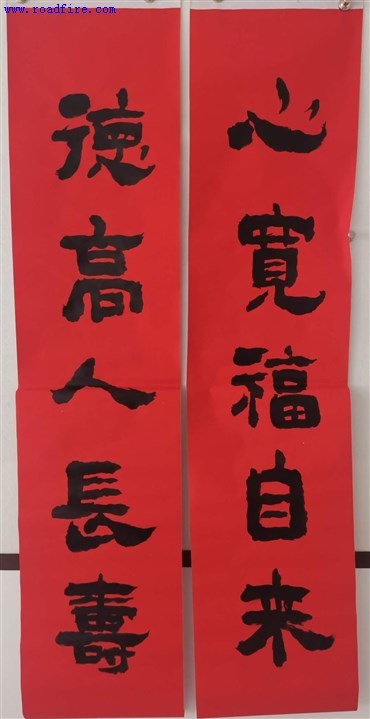 www.roadfire.com
心寬福自来
德高人長壽